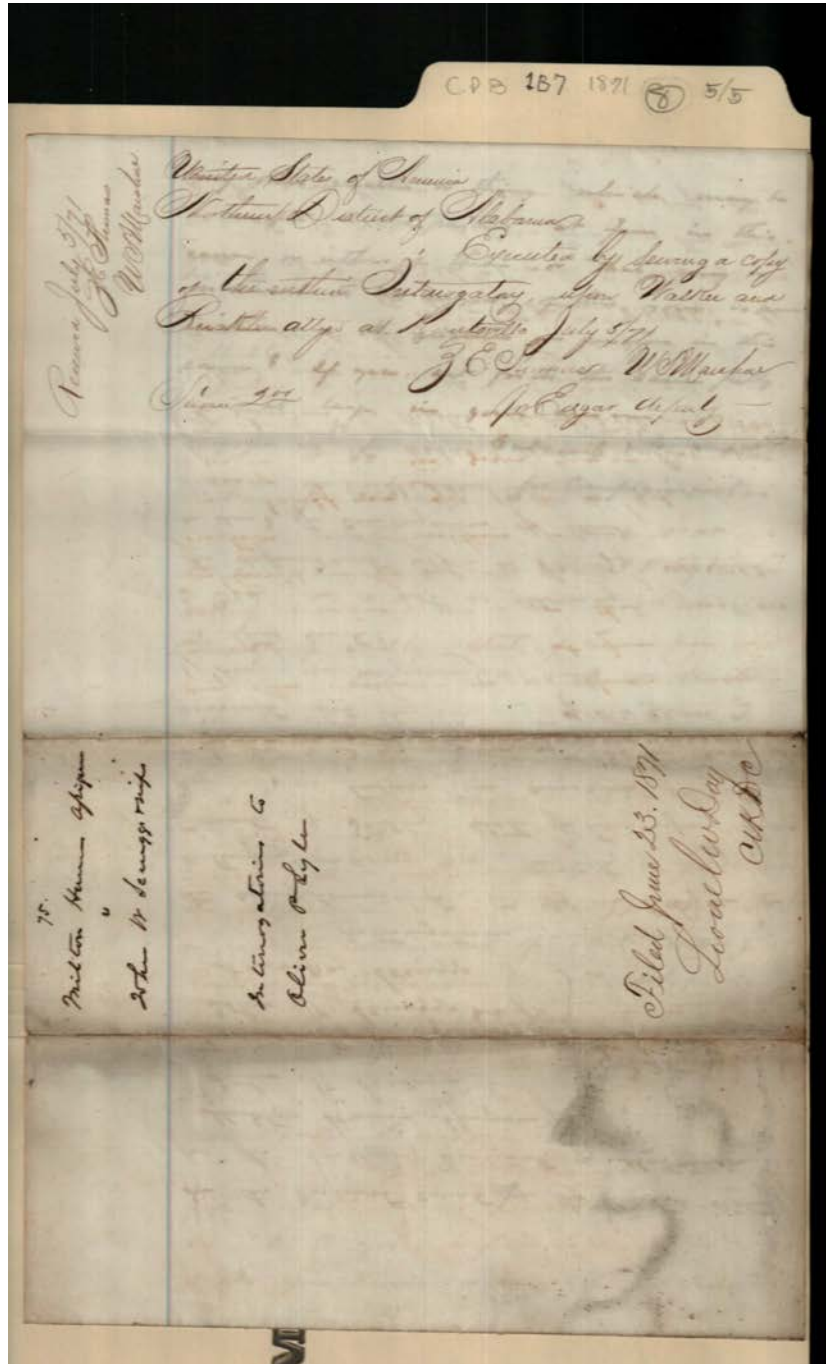 C.D.B 1B7 1871 8 5/5
Received July 5/71
Z E Thomas
U S Marshal
United States of America
Northern District of Alabama
Executed by serving a copy
of the within Interrogatory upon Walker and
attys at Huntsville July 5/71
Z E Thomas U S Marshal
Edgar deputy
75.
Milton Humes assignee
v
John W Scruggs
Interrogatories to
Oliver P Lyle
Filed June 23. 1871
Lionel W Day
Clk DC